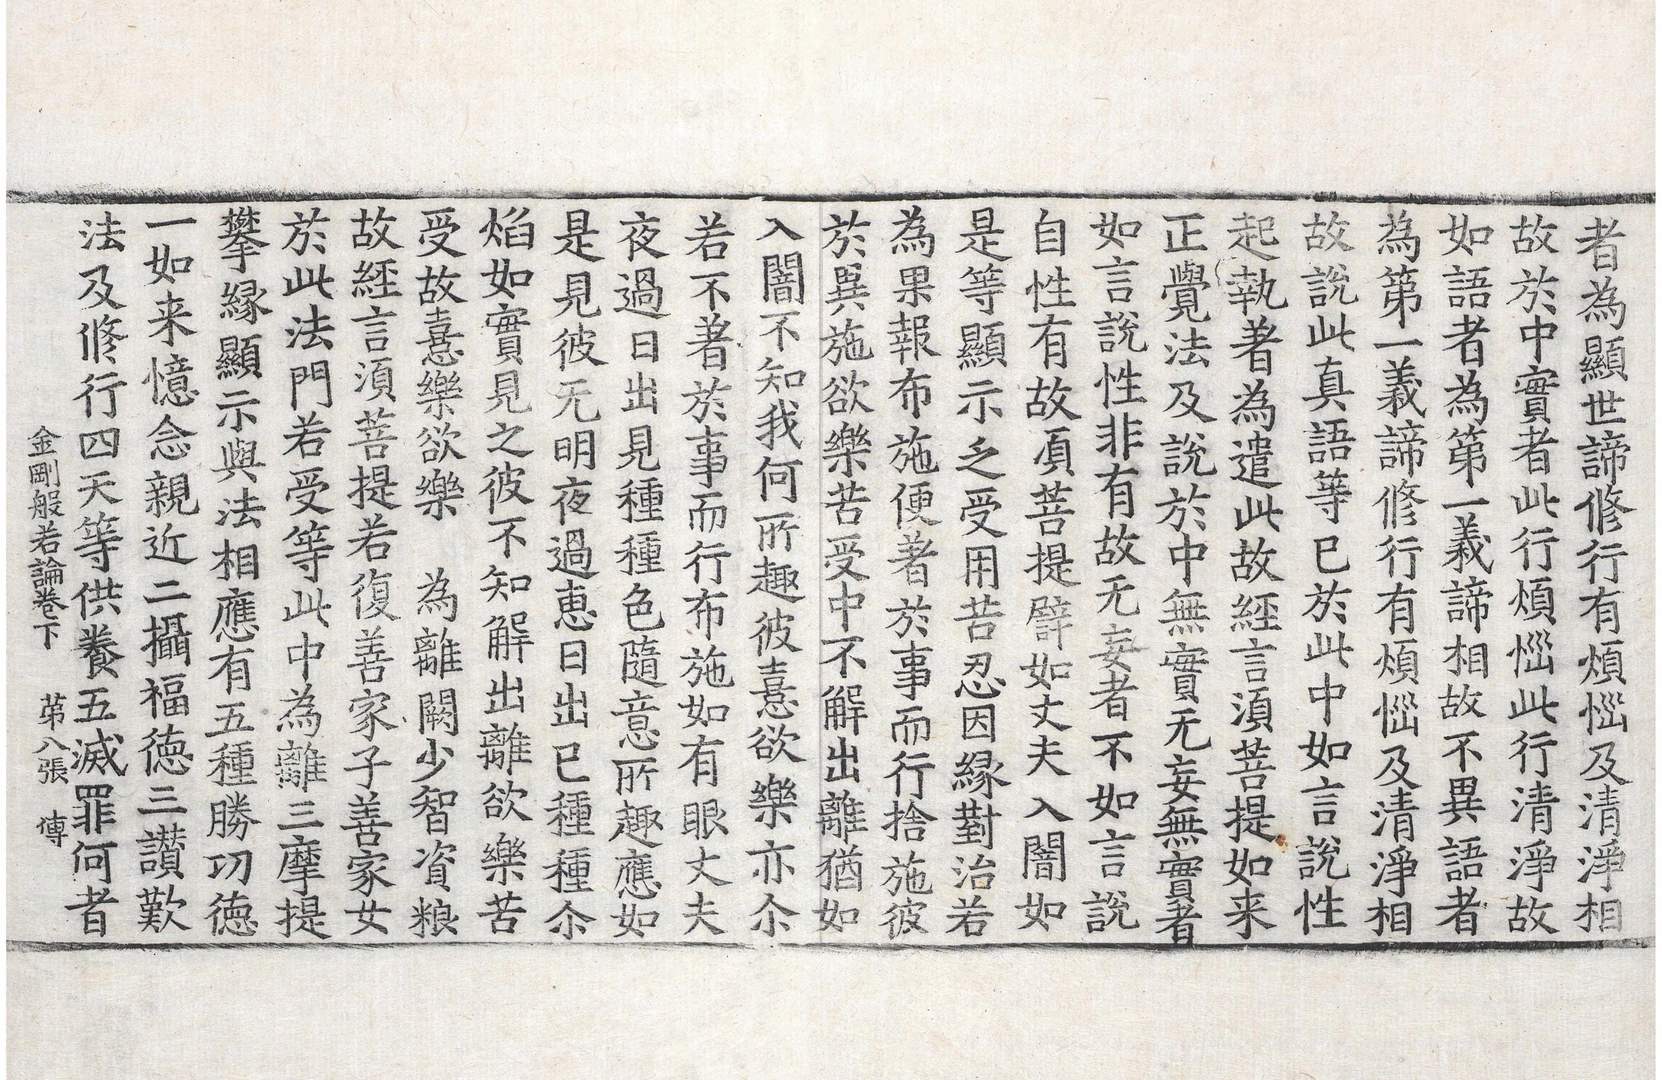 者為顯世諦俢行有煩惱及清淨相
故於中實者此行煩惱此行清淨故
如語者為第一義諦相故不異語者
為第一義諦俢行有煩惱及清淨相
故說此真語等已於此中如言說性
起執著為遣此故經言湏菩提如来
正覺法及說於中無實无妄無實者
如言說性非有故无妄者不如言說
自性有故湏菩提譬如丈夫入闇如
是等顯示乏受用苦忍因縁對治若
為果報布施便著於事而行捨施彼
於異施欲樂苦受中不解出離猶如
入闇不知我何所趣彼憙欲樂亦尒
若不著於事而行布施如有眼丈夫
夜過日出見種種色隨意所趣應如
是見彼无明夜過恵日出已種種尒
焰如實見之彼不知解出離欲樂苦
受故憙樂欲樂　為離闕少智資粮
故經言湏菩提若復善家子善家女
於此法門若受等此中為離三摩提
攀縁顯示與法相應有五種勝功徳
一如来憶念親近二攝福徳三讃歎
法及俢行四天等供養五滅罪何者
金剛般若論卷下　苐八張　傳